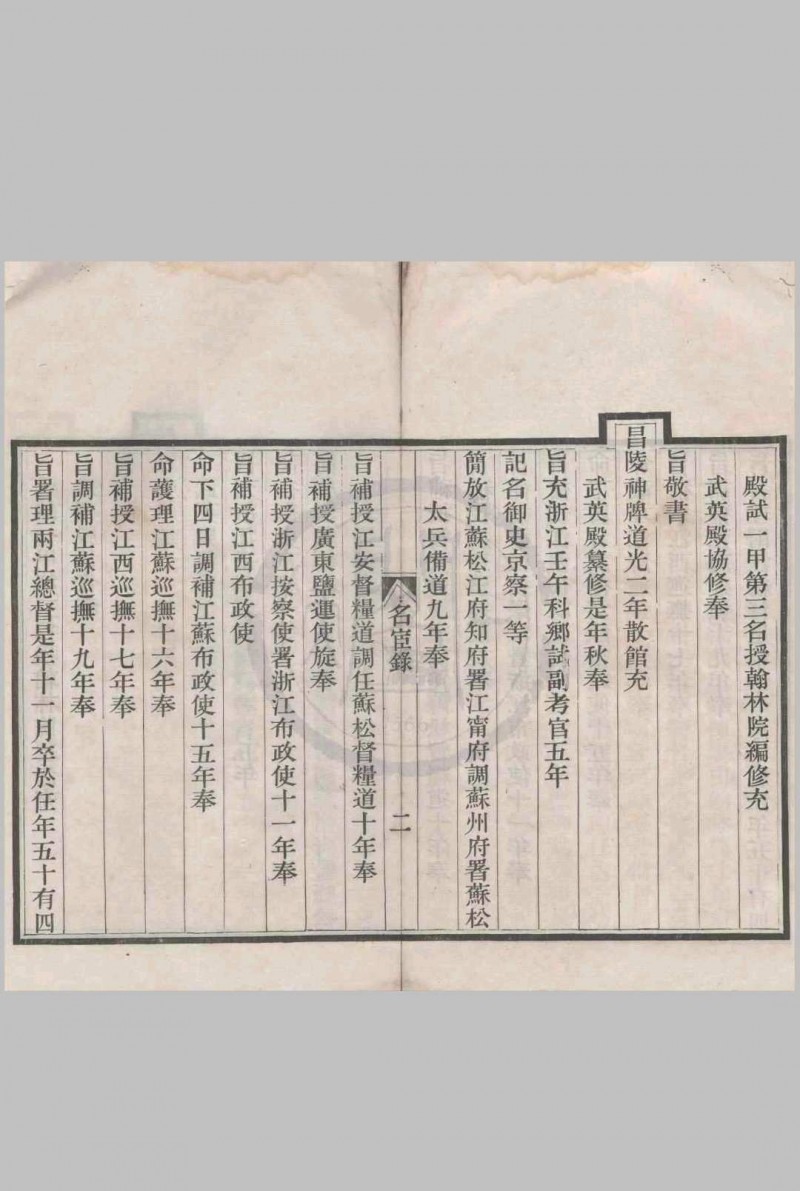 殿試一甲第三名授翰林院編修充
武英殿協修奉
旨敬書
昌陵神牌道光二年散館充
武英殿纂修是年秋奉
旨充浙江壬午科鄉試副考官五年
記名御史京察一等
簡放江蘇松江府知府署江甯府調蘇州府署蘇松
太兵備道九年奉
名宦錄
二
旨補授江安督糧道調任蘇松督糧道十年奉
旨補授廣東鹽運使旋奉
旨補授浙江按察使署浙江布政使十一年奉
旨補授江西布政使
命下四日調補江蘇布政使十五年奉
命護理江蘇巡撫十六年奉
旨補授江西巡撫十七年奉
旨調補江蘇巡撫十九年奉
旨署理兩江總督是年十一月卒於任年五十有四